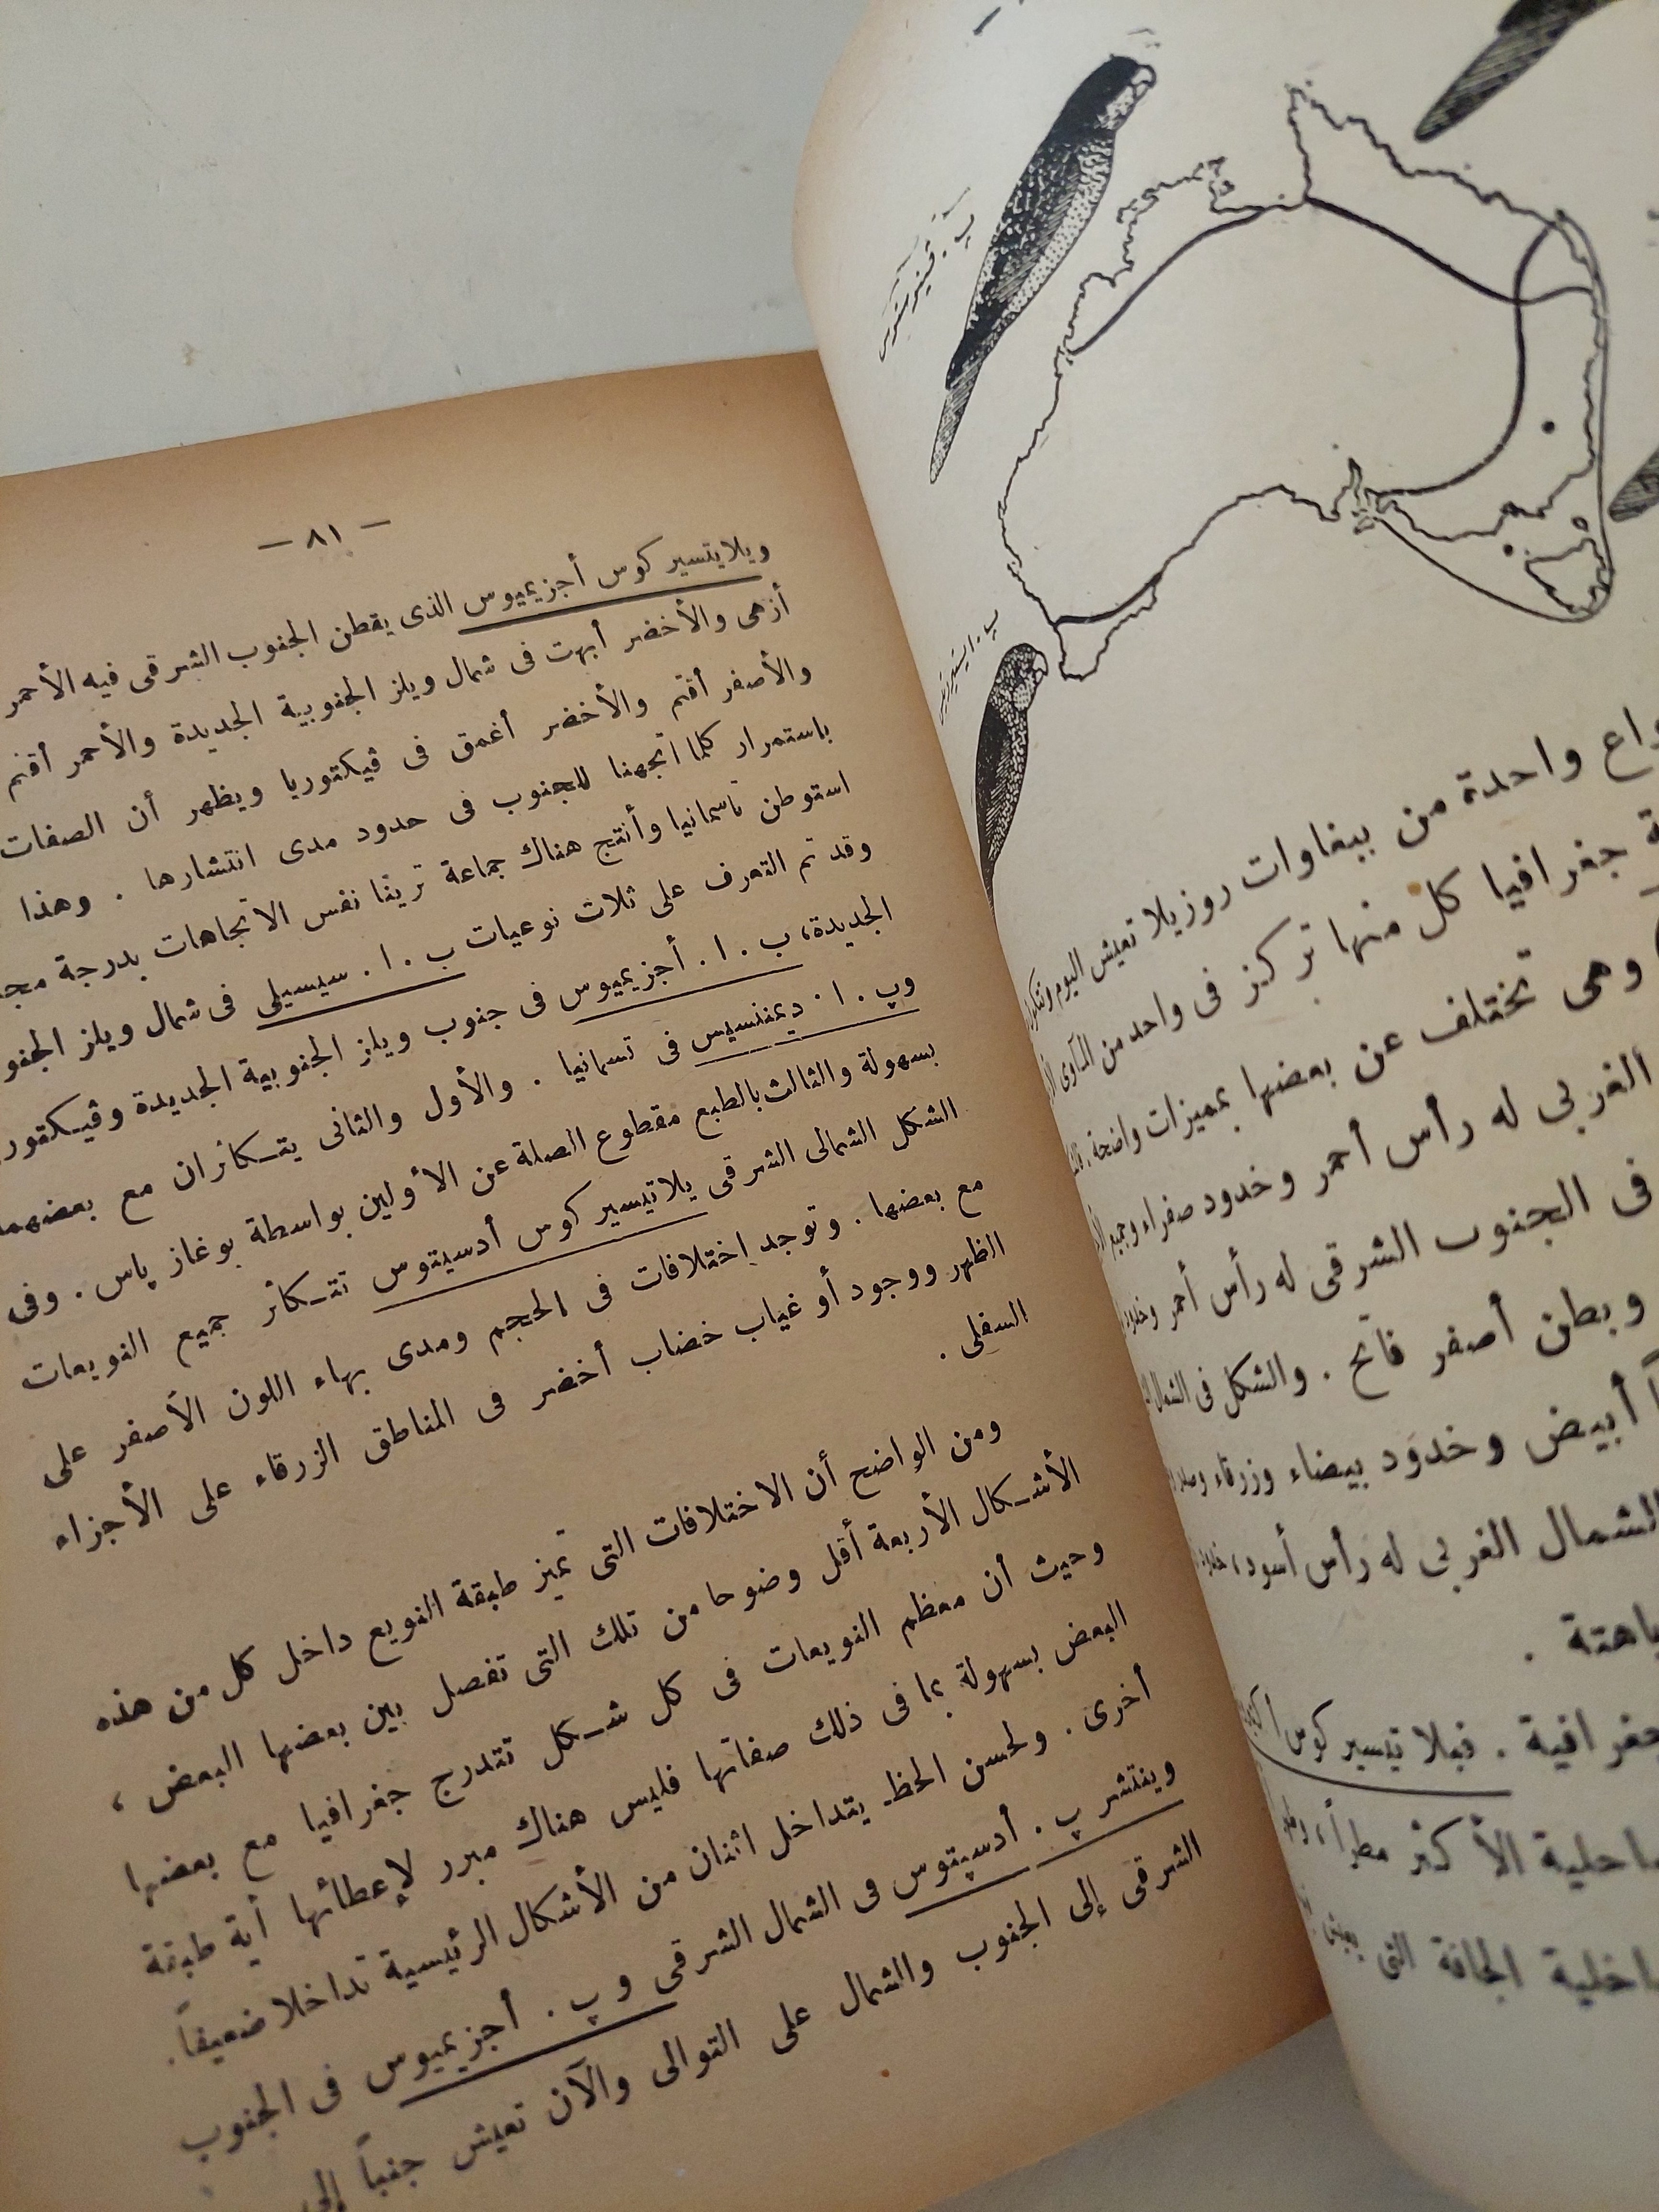 واع واحدة من ببغاوات روزيلا تعيش اليوم
ة جغرافيا كل منها تركز فى واحد من المآوى
وهى تختلف عن بعضها بمميزات واضحة .
الغربى له رأس أحمر وخدود صفراء وجميع
فى الجنوب الشرقى له رأس أحمر
وبطن أصفر فاتح . والشكل فى الشمال
أبيض وخدود بيضاء وزرقاء
لشمال الغربى له رأس أسود ،
باهتة .
جغرافية . فبلاتيسير كوس
ساحلية الأكثر مطراً ،
داخلية الجافة التى
— ٨١ —
وپلايتسير كوس أجزيميوس الذى يقطن الجنوب الشرقى فيه الأحمر
أزهى والأخضر أبهت فى شمال ويلز الجنوبية الجديدة والأحمر أقتم
والأصفر أقتم والأخضر أغمق فى ڤيكتوريا ويظهر أن الصفات
باستمرار كلما اتجهنا للجنوب فى حدود مدى انتشارها . وهذا
استوطن تاسمانيا وأنتج هناك جماعة ترينا نفس الاتجاهات بدرجة
وقد تم التعرف على ثلاث نوعيات ب . ا . سيسيلى فى شمال ويلز الجنو
الجديدة ، ب . ا . أجزيميوس فى جنوب ويلز الجنوبية الجديدة وڤيكتور
وپ . ا . ديمننسيس فى تسمانيا . والأول والثانى يتكاثران مع بعضهما
بسهولة والثالث بالطبع مقطوع الصلة عن الأولين بواسطة بوغاز پاس . وفى
الشكل الشمالى الشرقى پلاتيسير كوس أدسيتوس تتكاثر جميع النويعات
مع بعضها . وتوجد اختلافات فى الحجم ومدى بهاء اللون الأصفر على
الظهر ووجود أو غياب خضاب أخضر فى المناطق الزرقاء على الأجزاء
السفلى .
ومن الواضح أن الاختلافات التى تميز طبقة النويع داخل كل من هذه
الأشكال الأربعة أقل وضوحا من تلك التى تفصل بين بعضها البعض ،
وحيث أن معظم النويعات فى كل شكل تتدرج جغرافيا مع بعضها
البعض بسهولة بما فى ذلك صفاتها فليس هناك مبرر لإعطائها أية طبقة
أخرى . ولحسن الحظ يتداخل اثنان من الأشكال الرئيسية تداخلا ضعيفاً .
وينتشر پ . أدسپتوس فى الشمال الشرقى و پ . أجزيميوس فى الجنوب
الشرقى إلى الجنوب والشمال على التوالى والآن تعيش جنباً إلى